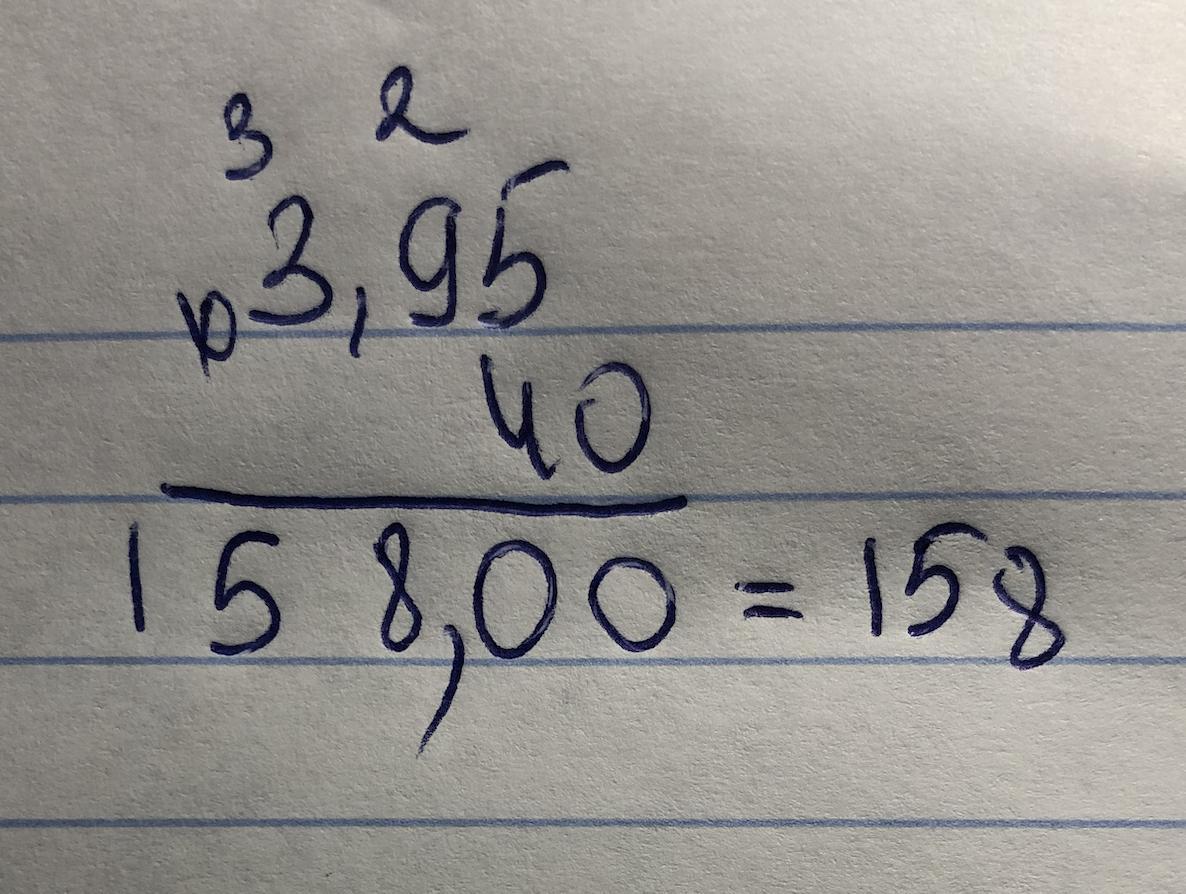 3 2
x 3,95
40
158,00 = 158